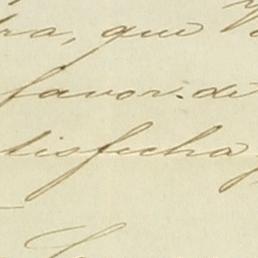 ra, que V
favor. de
tisfecha